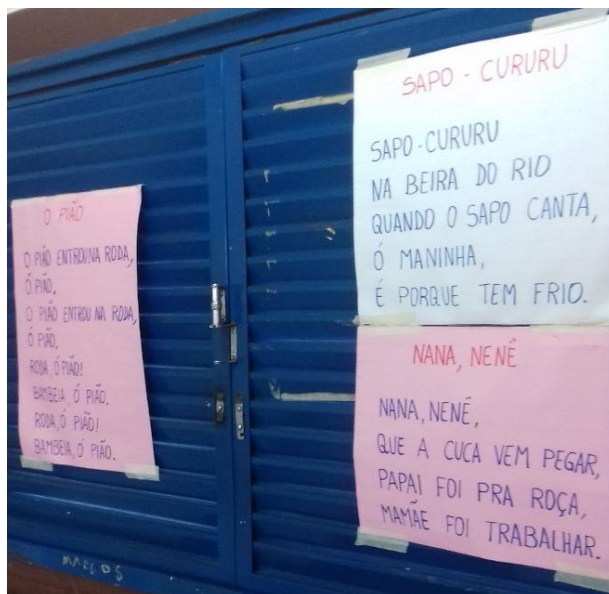 O PIÃO
O PIÃO ENTROU NA RODA,
Ó PIÃO.
O PIÃO ENTROU NA RODA,
Ó PIÃO.
RODA, Ó PIÃO!
BAMBEIA, Ó PIÃO.
RODA, Ó PIÃO!
BAMBEIA, Ó PIÃO.
SAPO - CURURU
SAPO - CURURU
NA BEIRA DO RIO
QUANDO O SAPO CANTA,
Ó MANINHA,
É PORQUE TEM FRIO.
NANA, NENÊ
NANA, NENÉ,
QUE A CUCA VEM PEGAR,
PAPAI FOI PRA ROÇA,
MAMÃE FOI TRABALHAR.
MARCOS